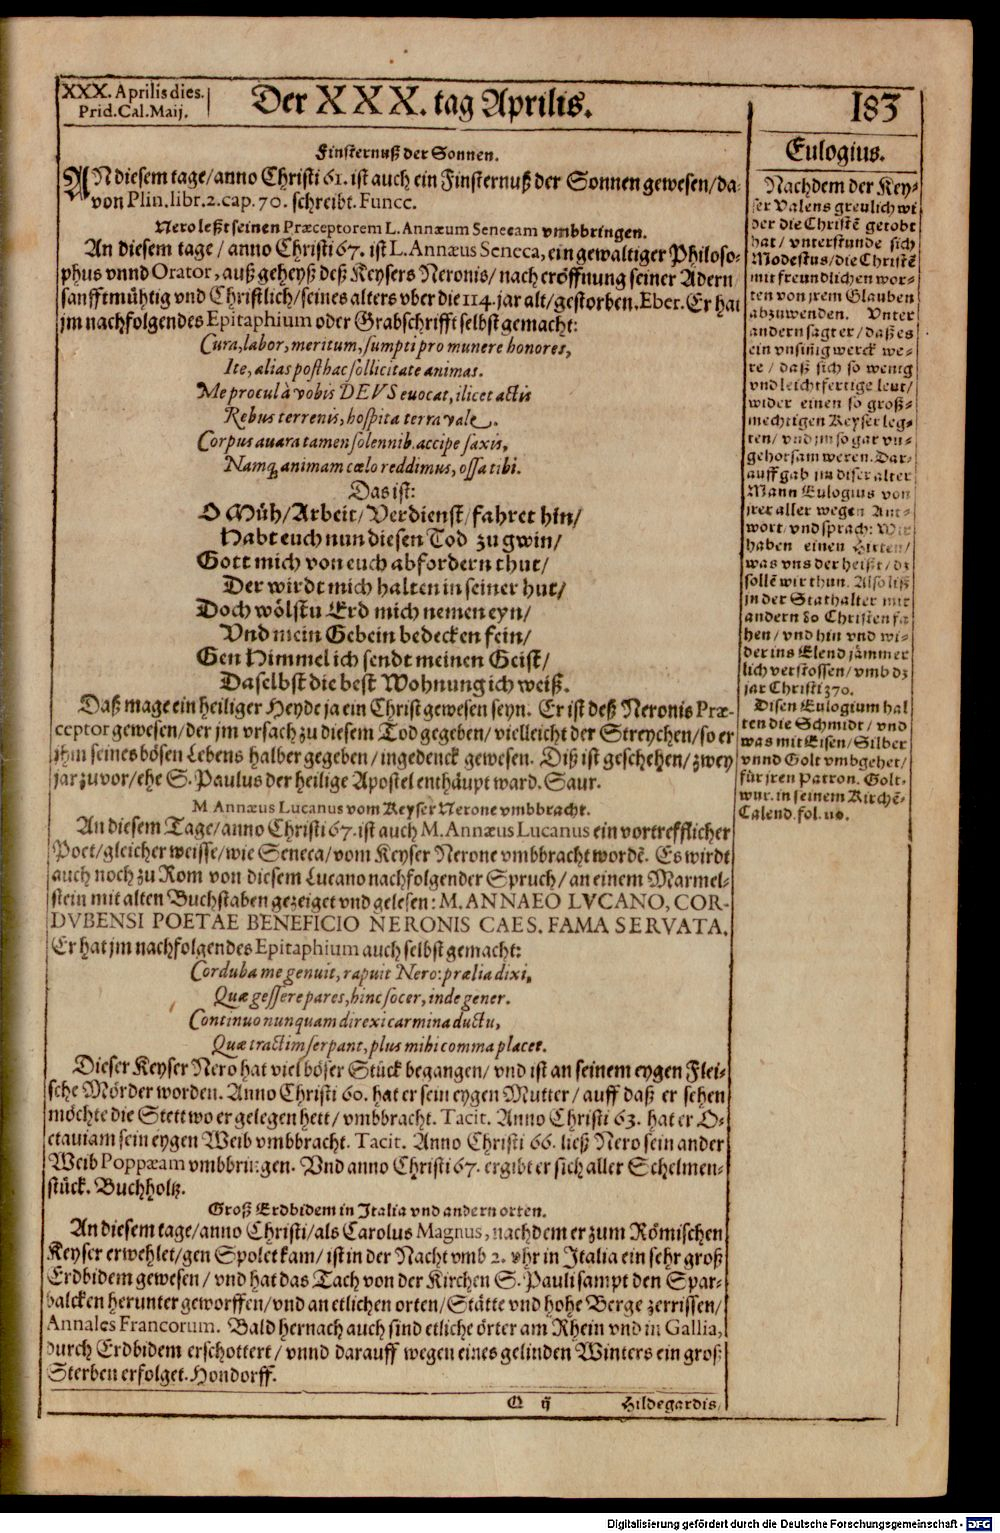 XXX. Aprilis dies.
Prid. Cal. Maij.
Der XXX. tag Aprilis.
183
Finsternuß der Sonnen.
AN diesem tage/ anno Christi 61. ist auch ein Finsternuß der Sonnen gewesen/ da-
von Plin. libr. 2. cap. 70. schreibt. Funcc.
Nero leßt seinen Præceptorem L. Annæum Senecam vmbbringen.
An diesem tage / anno Christi 67. ist L. Annæus Seneca, ein gewaltiger Philoso-
phus vnnd Orator, auß geheyß deß Keysers Neronis/ nach eröffnung seiner Adern
sanfftmühtig vnd Christlich/ seines alters vber die 114. jar alt/ gestorben. Eber. Er hat
jm nachfolgendes Epitaphium oder Grabschrifft selbst gemacht:
Cura, labor, meritum, sumpti pro munere honores,
Ite, alias posthac sollicitate animas.
Me procul à vobis DEVS euocat, ilicet actis
Rebus terrenis, hospita terra vale.
Corpus auara tamen solennib. accipe saxis,
Namq; animam cælo reddimus, ossa tibi.
Das ist:
O Müh/ Arbeit/ Verdienst/ fahret hin/
Habt euch nun diesen Tod zu gwin/
Gott mich von euch abfordern thut/
Der wirdt mich halten in seiner hut/
Doch wölstu Erd mich nemen eyn/
Vnd mein Gebein bedecken fein/
Gen Himmel ich sendt meinen Geist/
Daselbst die best Wohnung ich weiß.
Daß mag e ein heiliger Heyde ja ein Christ gewesen seyn. Er ist deß Neronis Præ-
ceptor gewesen/ der jm vrsach zu diesem Tod gegeben/ vielleicht der Streychen/ so er
jhm seines bösen Lebens halber gegeben/ ingedenck gewesen. Diß ist geschehen/ zwey
jar zuvor/ ehe S. Paulus der heilige Apostel enthäupt ward. Saur.
M Annæus Lucanus vom Keyser Nerone vmbbracht.
An diesem Tage/ anno Christi 67. ist auch M. Annæus Lucanus ein vortrefflicher
Poet/ gleicher weisse/ wie Seneca/ vom Keyser Nerone vmbbracht wordẽ. Es wirdt
auch noch zu Rom von diesem Lucano nachfolgender Spruch/ an einem Marmel-
stein mit alten Buchstaben gezeiget vnd gelesen: M. ANNAEO LVCANO, COR-
DVBENSI POETAE BENEFICIO NERONIS CAES. FAMA SERVATA.
Er hat jm nachfolgendes Epitaphium auch selbst gemacht:
Corduba me genuit, rapuit Nero: prælia dixi,
Quæ gessere pares, hinc socer, inde gener.
Continuo nunquam direxi carmina ductu,
Quæ tractim serpant, plus mihi comma placet.
Dieser Keyser Nero hat viel böser Stück begangen/ vnd ist an seinem eygen Flei-
sche Mörder worden. Anno Christi 60. hat er sein eygen Mutter/ auff daß er sehen
möchte die Stett wo er gelegen hett/ vmbbracht. Tacit. Anno Christi 63. hat er O-
ctauiam sein eygen Weib vmbbracht. Tacit. Anno Christi 66. ließ Nero sein ander
Weib Poppæam vmbbringen. Vnd anno Christi 67. ergibt er sich aller Schelmen-
stück. Buchholtz.
Groß Erdbidem in Italia vnd andern orten.
An diesem tage/ anno Christi/ als Carolus Magnus, nachdem er zum Römischen
Keyser erwehlet/ gen Spolet kam/ ist in der Nacht vmb 2. vhr in Italia ein sehr groß
Erdbidem gewesen/ vnd hat das Tach von der Kirchen S. Pauli sampt den Spar-
balcken herunter geworffen/ vnd an etlichen orten/ Stätte vnd hohe Berge zerrissen/
Annales Francorum. Bald hernach auch sind etliche örter am Rhein vnd in Gallia,
durch Erdbidem erschottert/ vnnd darauff wegen eines gelinden Winters ein groß
Sterben erfolget. Hondorff.
Q ij
Hildegardis/
Eulogius.
Nachdem der Key-
ser Valens greulich wi
der die Christẽ getobt
hat/ vnterstunde sich
Modestus/ die Christẽ
mit freundlichen wor-
ten von jrem Glauben
abzuwenden. Vnter
andern sagt er/ daß es
ein vnsiñig werck we-
re / daß sich so wenig
vnd leichtfertige leut/
wider einen so groß-
mechtigen Keyser leg-
ten/ vnd jm so gar vn-
gehorsam weren. Dar-
auff gab jm diser alter
Mann Eulogius von
jrer aller wegen Ant-
wort/ vnd sprach: Wir
haben einen Hirten/
was vns der heißt/ dz
sollẽ wir thun. Also ließ
jn der Stathalter mit
andern 80 Christen fa
hen/ vnd hin vnd wi-
der ins Elend jämmer
lich verstossen/ vmb dz
jar Christi 370.
Disen Eulogium hal
ten die Schmidt/ vnd
was mit Eisen/ Silber
vnnd Golt vmbgehet/
für jren Patron. Golt-
wur. in seinem Kirchẽ-
Calend. fol. 110.
Digitalisierung gefördert durch die Deutsche Forschungsgemeinschaft - DFG